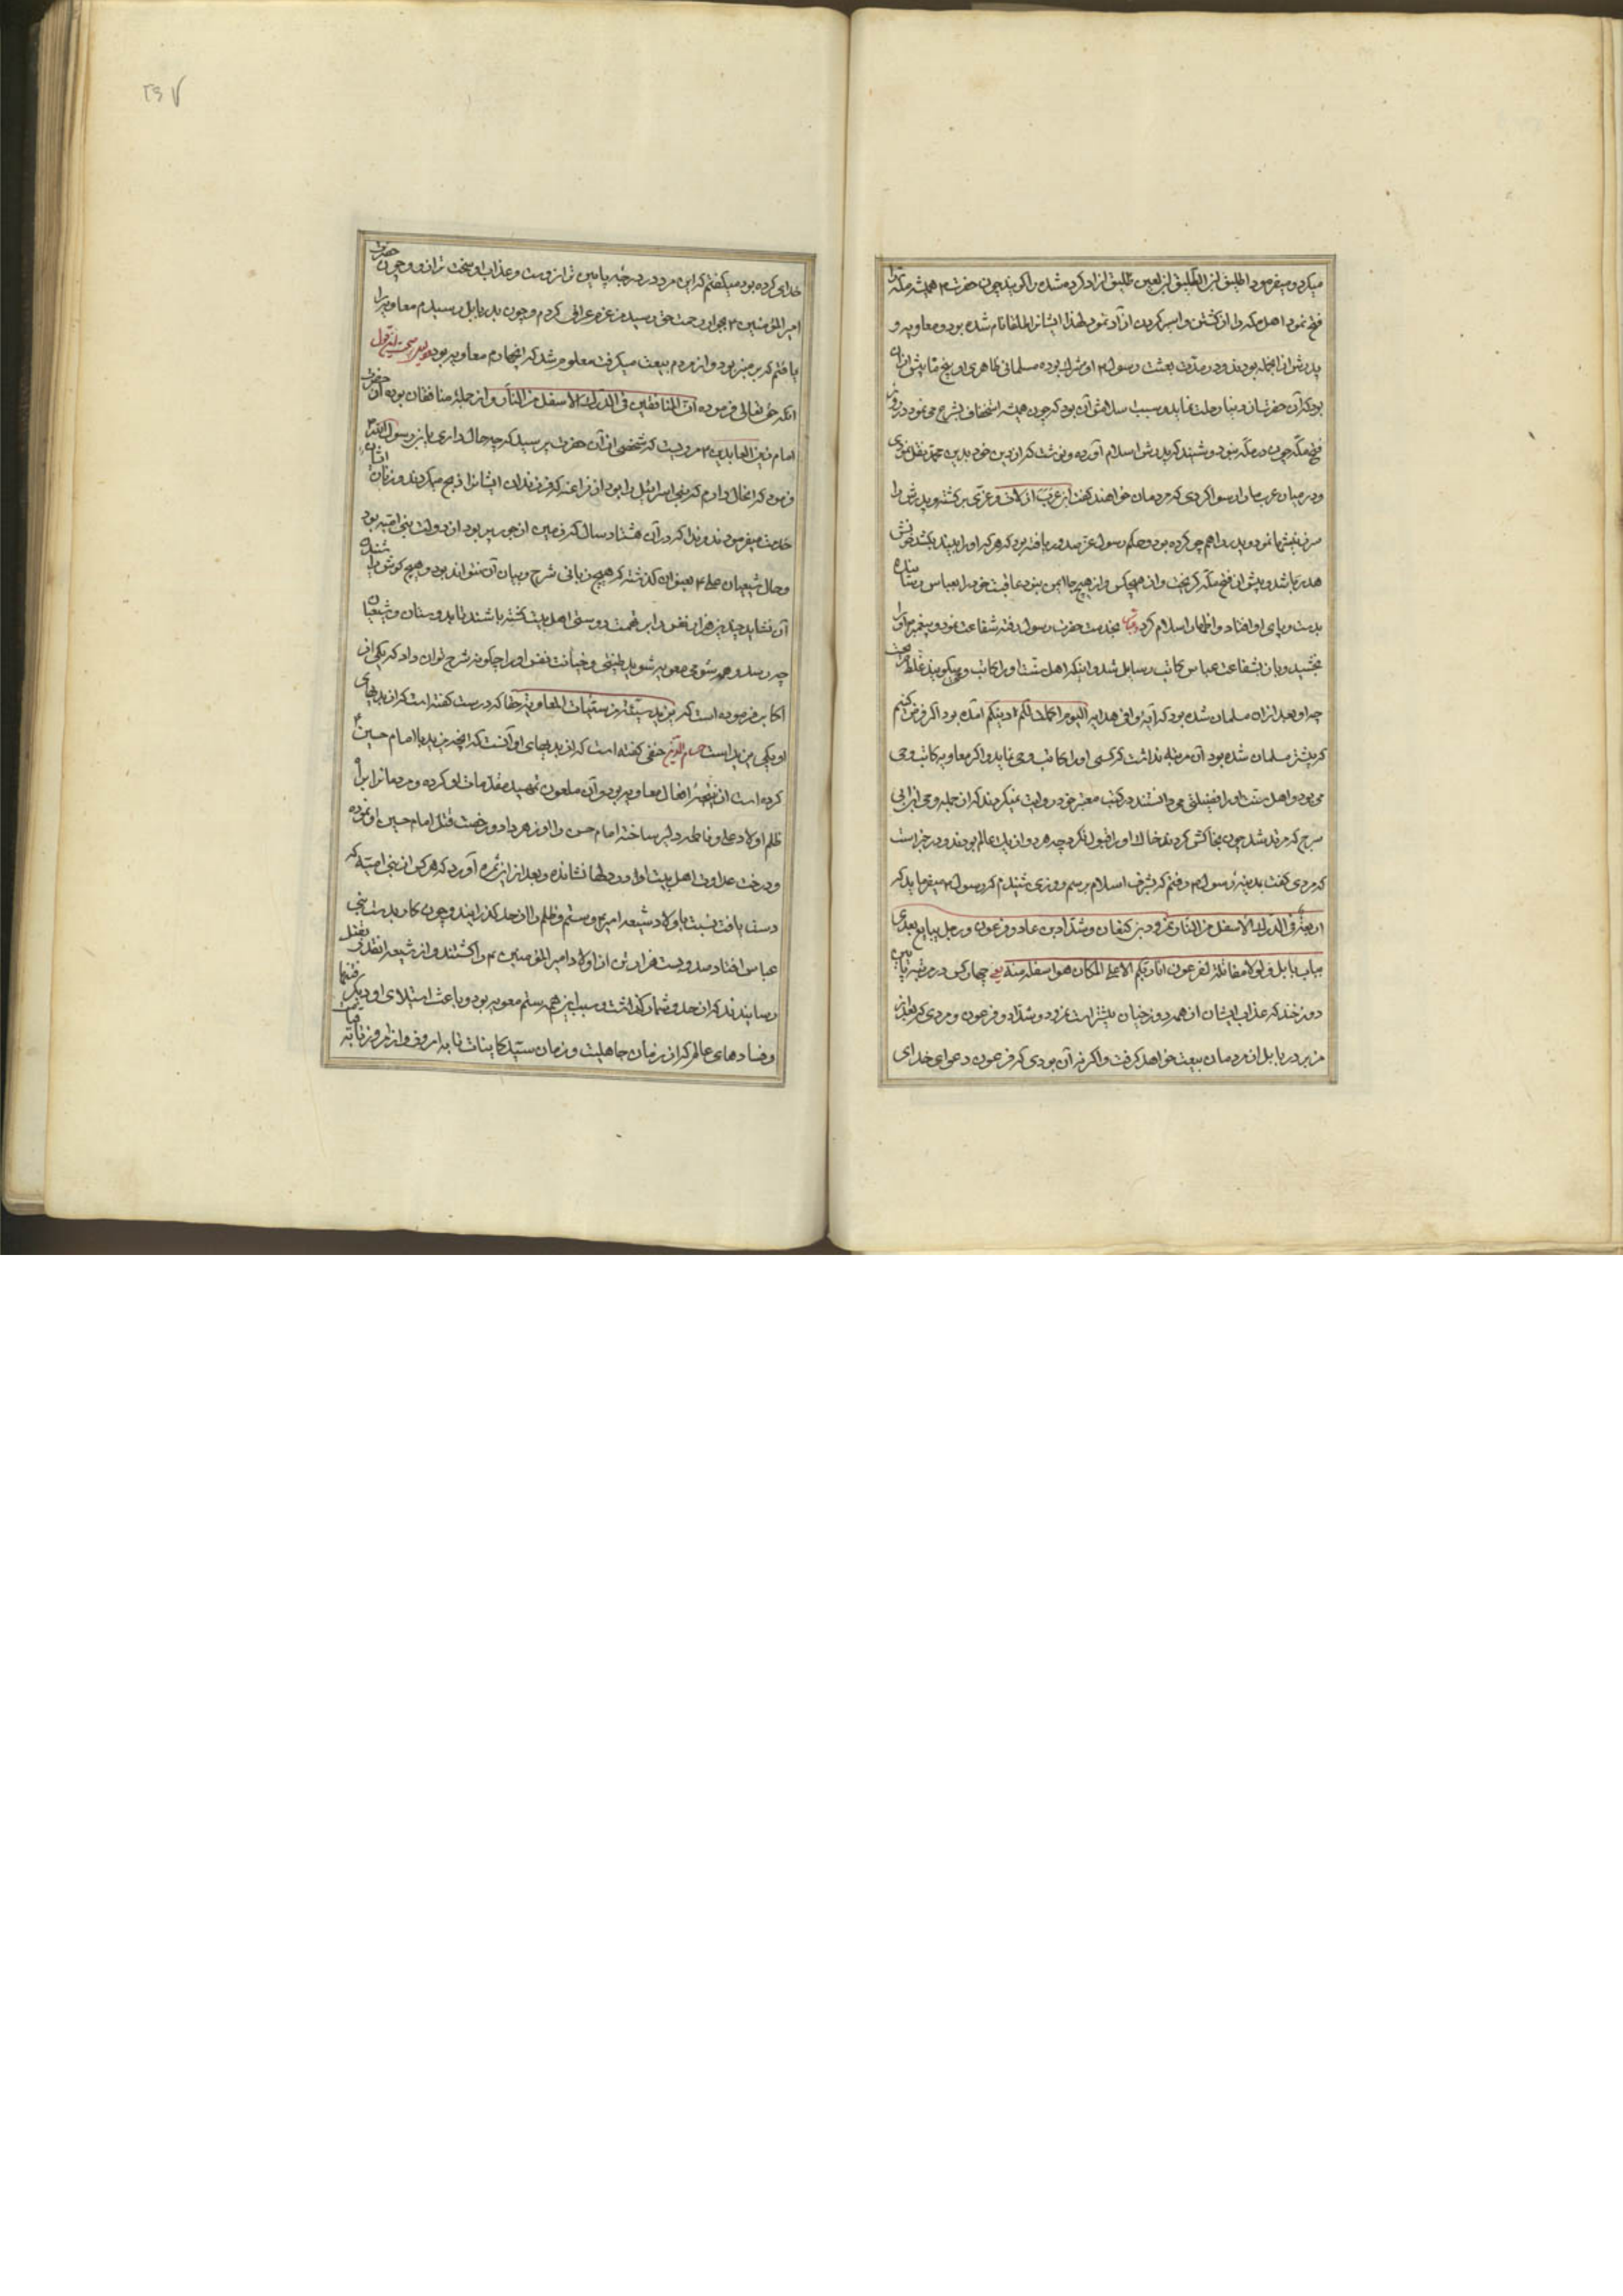 میکرد و میفرمود الطلیق بن الطلیق لعین بن لعین طلیق ازاد کرده شده را گویند چون حضرت م همیشه مکه را
فتح نمود اهل مکه را از کشتن و اسیر کردن ازاد نمود لهذا ایشانرا طلقا نام شده بود و معاویه و
پدرش از انجمله بودند و در مدت بعثت رسول م او مشرک بوده مسلمانی ظاهری او پنج ماه پیش از ان
بود که آن حضرت از دنیا رحلت نماید و سبب اسلامش آن بود که چون همیشه استخفاف بشرع می نمود در روز
فتح مکه چون در مکه نبود و شنید که پدرش اسلام آورده و نوشت که از دین خود بدین محمد نقل نمودی
و در میان عرب ما را رسوا کردی که مردمان خواهند گفت ابن حرب از لات و عزی برگشته و پدرش را
سرزنشها نمود و پدر را هجو کرده بود و حکم رسول عز صدور یافته بود که هر که او را ببیند بکشد خونش
هدر باشد و پیش از فتح مکه گریخت و از هیچکس و از هیچ جا ایمن نبود عاقبت خود را بعباس رسانیده
بدست و پای او افتاد و اظهار اسلام کرد عباس بخدمت حضرت رسول رفته شفاعت نمود و پیغمبر م او را
بخشید و بان شفاعت عباس کاتب رسایل شد و اینکه اهل سنت او را کاتب وحی میگویند غلط محض است
چه او بعد از ان مسلمان شده بود که آیه وافی هدایه الیوم اکملت لکم دینکم آمده بود اگر فرض کنیم
که پیشتر مسلمان شده بود آن مرتبه نداشت که کسی او را کاتب وحی نماید و اگر معاویه کاتب وحی
می بود و اهل سنت ان را فضیلتی می دانستند در کتب معتبر خود روایت میکردند که از جمله وحی ابن ابی
سرح که مرتد شد چون بخاکش کردند خاک او را قبول نکرد چه هر دو از یک عالم بودند و در خبر است
که مردی گفت بمدینه رسول م رفتم که بشرف اسلام برسم روزی شنیدم که رسول م میفرماید که
اربعة فی الدرک الاسفل من النار نمرود بن کنعان و شداد بن عاد و فرعون و رجل یبایع بعدی
بباب بابل و لولا مقالة لفرعون انا ربکم الاعلی لکان هو اسفل منه یعنی چهار کس در مرتبه پایین
دوزخند که عذاب ایشان از همه دوزخیان بیشتر است نمرود و شداد و فرعون و مردی که بعد از
من بر در بابل از مردمان بیعت خواهد گرفت و اگر نه آن بودی که فرعون دعوای خدای
خدای کرده بود میگفتم که این مرد در درجه پایین تر از وست و عذاب او سخت تر از و و چون حضرت
امیر المؤمنین م بجوار رحمت حق رسید من عزم عراق کردم و چون بدر بابل رسیدم معاویه را
یافتم که بر منبر بود و از مردم بیعت میگرفت معلوم شد که انچهارم معاویه بود
انکه حق تعالی فرموده ان المنافقین فی الدرک الاسفل من النار و از جمله منافقان بوده از حضرت
امام زین العابدین م مرویست که شخصی از آن حضرت پرسید که چه حال داری یا بن رسول الله م
فرمود که انحال دارم که بنی اسرائیل را بود از فراعنه که فرزندان ایشانرا ذبح میکردند و زنان ایشان
خدمت میفرمودند و زیرا که در آن هشتاد سال که زمین از جور پر بود از دولت بنی امیه بود
و حال شیعیان علی م بعنوان گذشته که هیچ زبانی شرح و بیان آن نتواند بود و هیچ گوش را شنیدن
آن نشاید چندین هزار نفس را بر تهمت دوستی اهل بیت کشته باشند تا بدوستان و شیعیان
چه رسد و همه شومی معویه شوید طینتی و خباثت نفس او را چگونه شرح توان داد که یکی از
اکابر فرموده است که یزید سیئة من سیئات المعاویة حقا که درست گفته است که از بدیهای
او یکی یزید است حنفی گفته است که از بدیهای او آنست که انچه یزید با امام حسین م
کرده است از نتیجه افعال معاویه بود و آن ملعون تمهید مقدمات او کرده و مردمانرا بران
ظلم اولاد علی و فاطمه دلیر ساخته امام حسن را او زهر داد و رخصت قتل امام حسین او نموده
و درخت عداوت اهل بیت او در دلها نشانده و بعد از ان ثمره آورد که هر کس از بنی امیه که
دست یافت نسبت باولاد شیعه امیر م ستم و ظلم را از حد گذرانیدند و چون کار بدست بنی
عباس افتاد صد و بیست هزار تن از اولاد امیر المؤمنین م را کشتند و از شیعه انقدر بقتل
رسانیدند که از حد و شمار گذشت و سبب این همه ستم معویه بود و باعث استیلای او دیگر فتنها
و فسادهای عالم که از زمان جاهلیت و زمان سید کاینات تا به امروز و از امروز تا به قیامت
۲۳۷